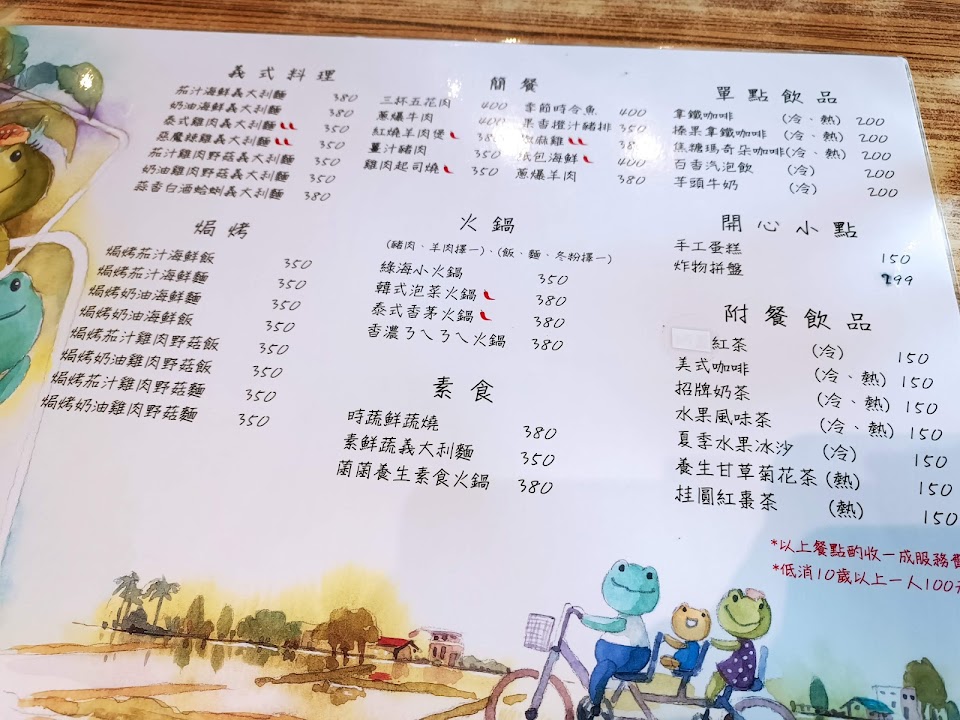 義式料理
茄汁海鮮義大利麵 380
奶油海鮮義大利麵 380
泰式雞肉義大利麵 350
惡魔辣雞義大利麵 350
茄汁雞肉野菇義大利麵 350
奶油雞肉野菇義大利麵 350
蒜香白酒蛤蜊義大利麵 380
焗烤
焗烤茄汁海鮮飯 350
焗烤茄汁海鮮麵 350
焗烤奶油海鮮麵 350
焗烤奶油海鮮飯 350
焗烤茄汁雞肉野菇飯 350
焗烤奶油雞肉野菇飯 350
焗烤茄汁雞肉野菇麵 350
焗烤奶油雞肉野菇麵 350
簡餐
三杯五花肉 400
蔥爆牛肉 400
紅燒羊肉煲 380
薑汁豬肉 350
雞肉起司燒 350
季節時令魚 400
果香橙汁豬排 350
椒麻雞 380
紙包海鮮 400
蔥爆羊肉 380
火鍋
(豬肉、羊肉擇一)、(飯、麵、冬粉擇一)
綠海小火鍋 350
韓式泡菜火鍋 380
泰式香茅火鍋 380
香濃ㄋㄟㄋㄟ火鍋 380
素食
時蔬鮮蔬燒 380
素鮮蔬義大利麵 350
菌菌養生素食火鍋 380
單點飲品
拿鐵咖啡 (冷、熱) 200
榛果拿鐵咖啡 (冷、熱) 200
焦糖瑪奇朵咖啡(冷、熱) 200
百香汽泡飲 (冷) 200
芋頭牛奶 (冷) 200
開心小點
手工蛋糕 150
炸物拼盤 299
附餐飲品
紅茶 (冷) 150
美式咖啡 (冷、熱) 150
招牌奶茶 (冷、熱) 150
水果風味茶 (冷、熱) 150
夏季水果冰沙 (冷) 150
養生甘草菊花茶 (熱) 150
桂圓紅棗茶 (熱) 150
*以上餐點酌收一成服務費
*低消10歲以上一人100元